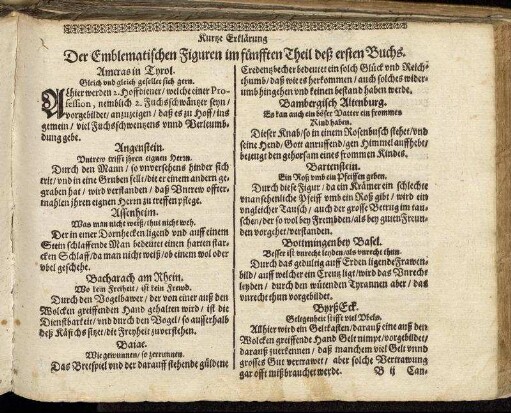 Kurtze Erklärung
Der Emblematischen Figuren im fünfften Theil deß ersten Buchs.
Ameras in Tyrol.
Gleich vnd gleich gesellet sich gern.
Alhier werden 2. Hoffdiener / welche einer Pro-
fession, nemblich 2. Fuchsschwäntzer seyn /
vorgebildet / anzuzeigen / daß es zu Hoff / ins
gemein / viel Fuchsschwentzens vnnd Verleumb-
dung gebe.
Angenstein.
Vntrew trifft ihren eignen Herrn.
Durch den Mann / so vnversehens hinder sich
tritt / vnd in eine Gruben fellt / die er einem andern ge-
graben hat / wird verstanden / daß Vntrew offter-
mahlen ihren eigenen Herrn zu treffen pflege.
Assenheim.
Was man nicht weiß / thut nicht weh.
Der in einer Dornhecken ligend vnd auff einem
Stein schlaffende Man bedeutet einen harten star-
cken Schlaff / da man nicht weiß / ob einem wol oder
vbel geschehe.
Bacharach am Rhein.
Wo kein Freiheit / ist kein Frewd.
Durch den Vogelbawer / der von einer auß den
Wolcken greiffenden Hand gehalten wird / ist die
Dienstbarkeit / vnd durch den Vogel / so ausserhalb
deß Käfichs sitzt / die Freyheit zuverstehen.
Baiae.
Wie gewunnen / so zerrunnen.
Das Bretspiel vnd der darauff stehende güldene
Credentzbecher bedeutet ein solch Glück vnd Reich-
thumb / daß wie es herkommen / auch solches wider-
umb hingehen vnd keinen bestand haben werde.
Bambergisch Altenburg.
Es kan auch ein böser Vatter ein frommen
Kind haben.
Dieser Knab / so in einem Rosenbusch stehet / vnd
seine Hend / Gott anruffend / gen Himmel auffhebt /
bezeuget den gehorsam eines frommen Kindes.
Bartenstein.
Ein Roß vmb ein Pfeiffen geben.
Durch diese Figur / da ein Krämer ein schlechte
vnansehenliche Pfeiff vmb ein Roß gibt / wird ein
vngleicher Tausch / auch der grosse Betrug im tau-
schen / der so wol bey Frembden / als bey guten Freun-
den vorgehet / verstanden.
Bottmingen bey Basel.
Besser ist vnrecht leyden / als vnrecht thun.
Durch das gedultig auff Erden ligende Frawen-
bild / auff welcher ein Creutz ligt / wird das Vnrecht
leyden / durch den wütenden Tyrannen aber / das
vnrecht thun vorgebildet.
ByrßEck.
Gelegenheit stifft viel Vbels.
Allhier wird ein Geltkasten / darauß eine auß den
Wolcken greiffende Hand Gelt nimpt / vorgebildet /
darauß zuerkennen / daß manchem viel Gelt vnnd
grosses Gut vertrawet / aber solche Vertrawung
gar offt mißbrauchet werde.
B ij
Can-